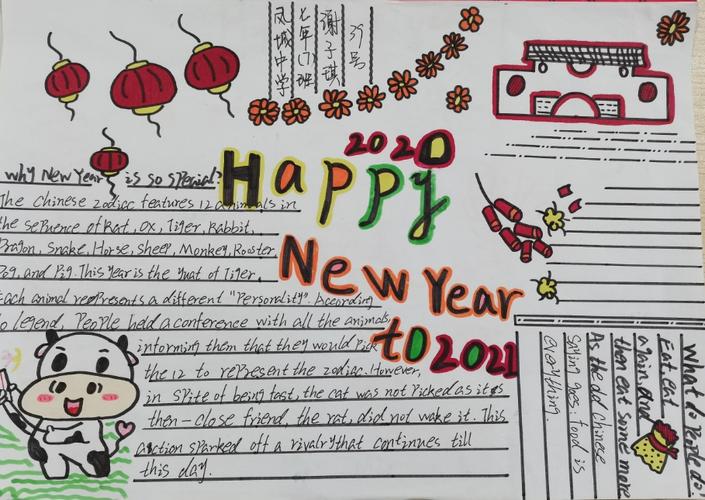 凤城中学
七年17班
谢子琪
39号
2020
Happy
New Year
to 2021
why New Year is so special?
The Chinese zodiac features 12 animals in
the sequence of Rat, Ox, Tiger, Rabbit,
Dragon, Snake, Horse, Sheep, Monkey, Rooster,
Dog, and Pig. This year is the yuat of Tiger.
Each animal represents a different "Personality". According
to legend, People held a conference with all the animals,
informing them that they would Pick
the 12 to rePresent the zodiac. However,
in sPite of being fast, the cat was not Picked as its
then-close friend, the rat, did not wake it. This
action sParked off a rivalry that continues till
this day.
What do People do.
Eat, eat
again. And
then eat some more
As the old chinese
saying goes: food is
everything.